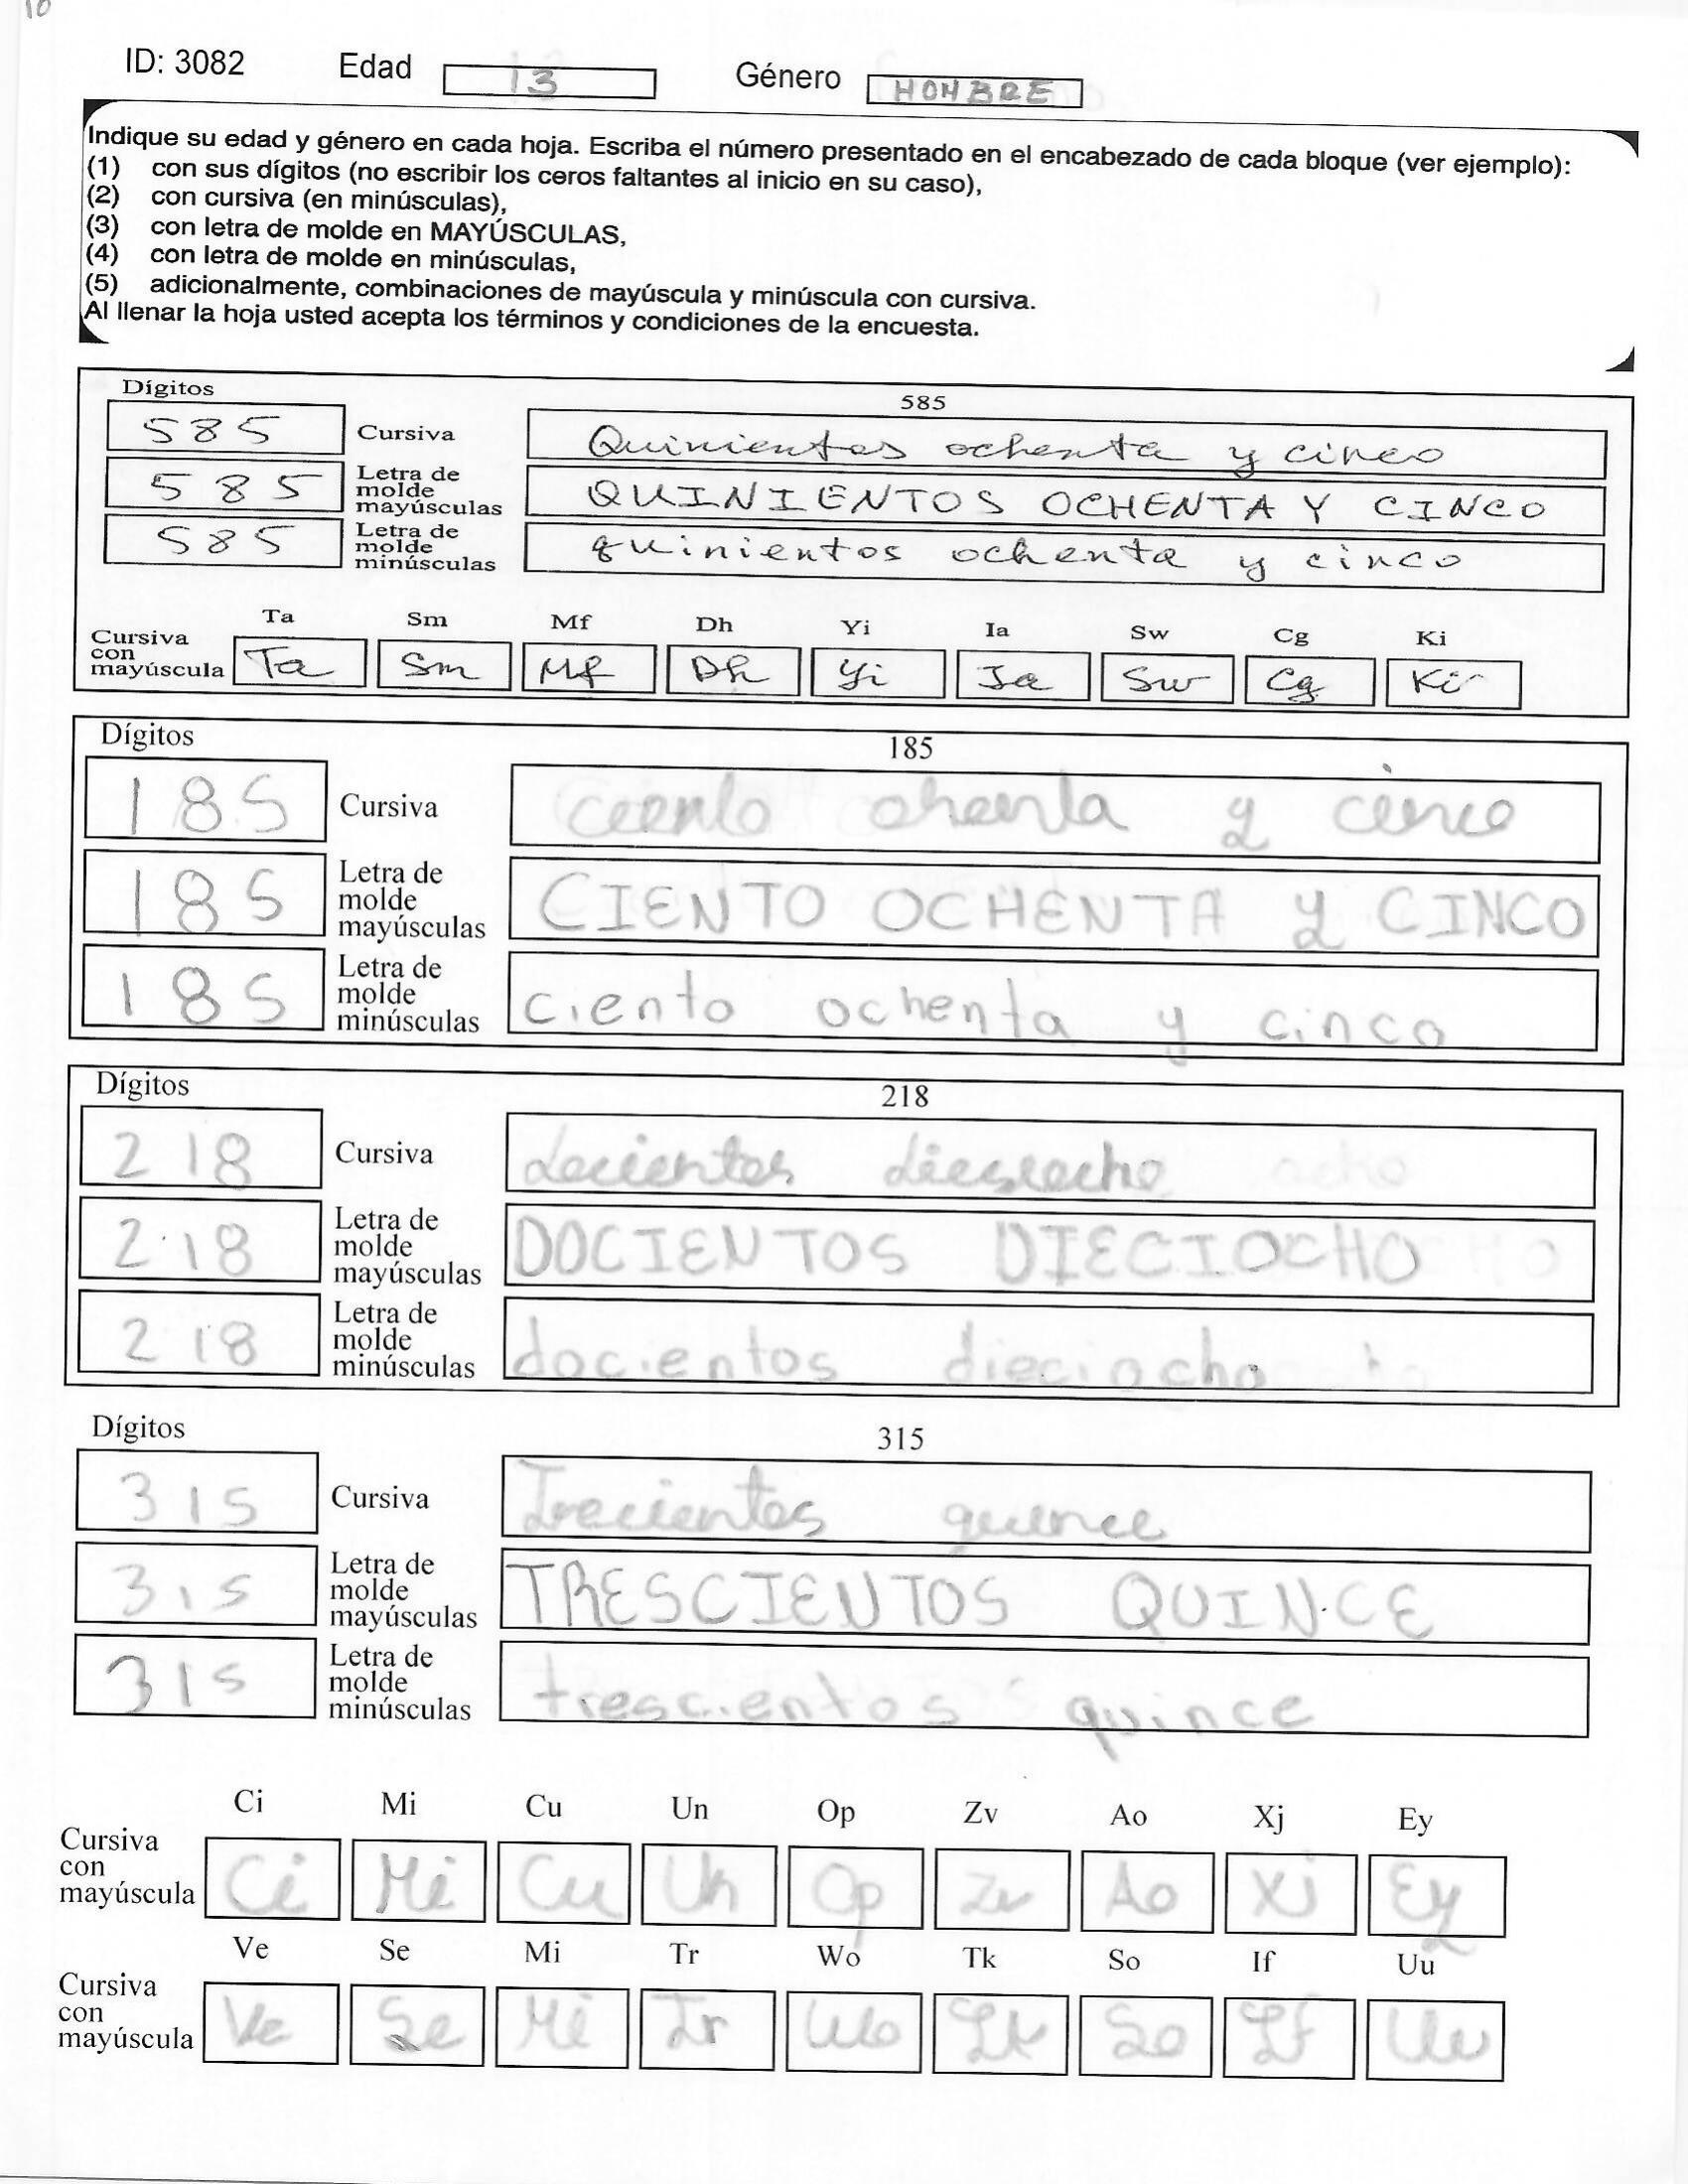 10
ID: 3082 Edad 13 Género HOMBRE
Indique su edad y género en cada hoja. Escriba el número presentado en el encabezado de cada bloque (ver ejemplo):
(1) con sus dígitos (no escribir los ceros faltantes al inicio en su caso),
(2) con cursiva (en minúsculas),
(3) con letra de molde en MAYÚSCULAS,
(4) con letra de molde en minúsculas,
(5) adicionalmente, combinaciones de mayúscula y minúscula con cursiva.
Al llenar la hoja usted acepta los términos y condiciones de la encuesta.
Dígitos 585
585 Cursiva Quinientos ochenta y cinco
585 Letra de molde mayúsculas QUINIENTOS OCHENTA Y CINCO
585 Letra de molde minúsculas quinientos ochenta y cinco
Ta Sm Mf Dh Yi Ia Sw Cg Ki
Cursiva con mayúscula Ta Sm Mf Dh Yi Ia Sw Cg Ki
Dígitos 185
185 Cursiva y cinco
185 Letra de molde mayúsculas CIENTO OCHENTA y CINCO
185 Letra de molde minúsculas ciento ochenta y cinco
Dígitos 218
218 Cursiva docientos
218 Letra de molde mayúsculas DOCIENTOS DIECIOCHO
218 Letra de molde minúsculas docientos dieciocho
Dígitos 315
315 Cursiva Trecientos quince
315 Letra de molde mayúsculas TRESCIENTOS QUINCE
315 Letra de molde minúsculas trescientos quince
Ci Mi Cu Un Op Zv Ao Xj Ey
Cursiva con mayúscula Ci Mi Cu Un Op Zv Ao Xj Ey
Ve Se Mi Tr Wo Tk So If Uu
Cursiva con mayúscula Ve Se Mi Tr Wo Tk So If Uu